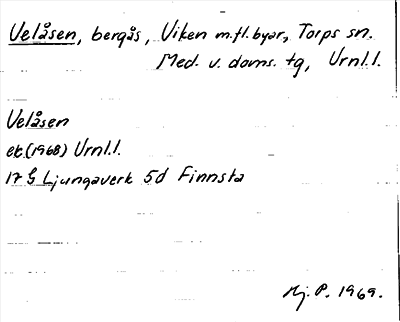 Velåsen, bergås, Viken m.fl. byar, Torps sn.
Med. v. doms. tg, Urnl.l.
Velåsen
ek (1968) Urnl.l.
17 G Ljungaverk 5d Finnsta
Hj. P. 1969.